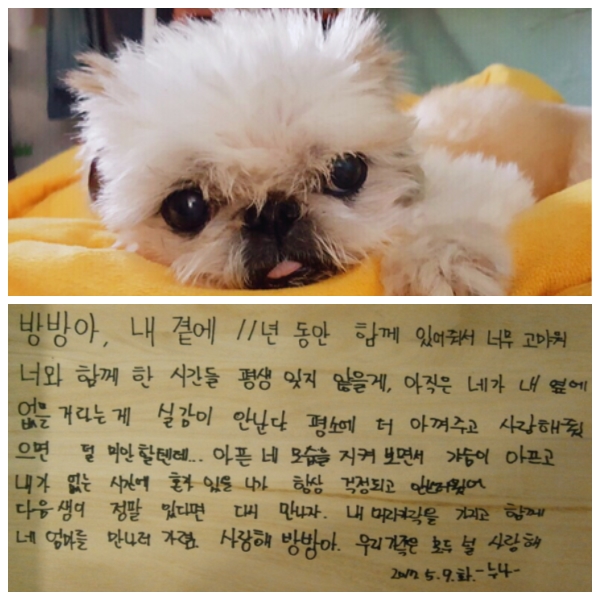 방방아, 내 곁에 11년 동안 함께 있어줘서 너무 고마워
너와 함께 한 시간들 평생 잊지 않을게, 아직은 네가 내 옆에
없을 거라는게 실감이 안난다 평소에 더 아껴주고 사랑해줬
으면 덜 미안할텐데... 아픈 네 모습을 지켜보면서 가슴이 아프고
내가 없는 시간에 혼자 있을 니가 항상 걱정되고 안쓰러웠어
다음생이 정말 있다면 다시 만나자. 내 머리카락을 가지고 함께
네 엄마를 만나러 가렴. 사랑해 방방아. 우리가족은 모두 널 사랑해
2017 5.9.화. -누나-